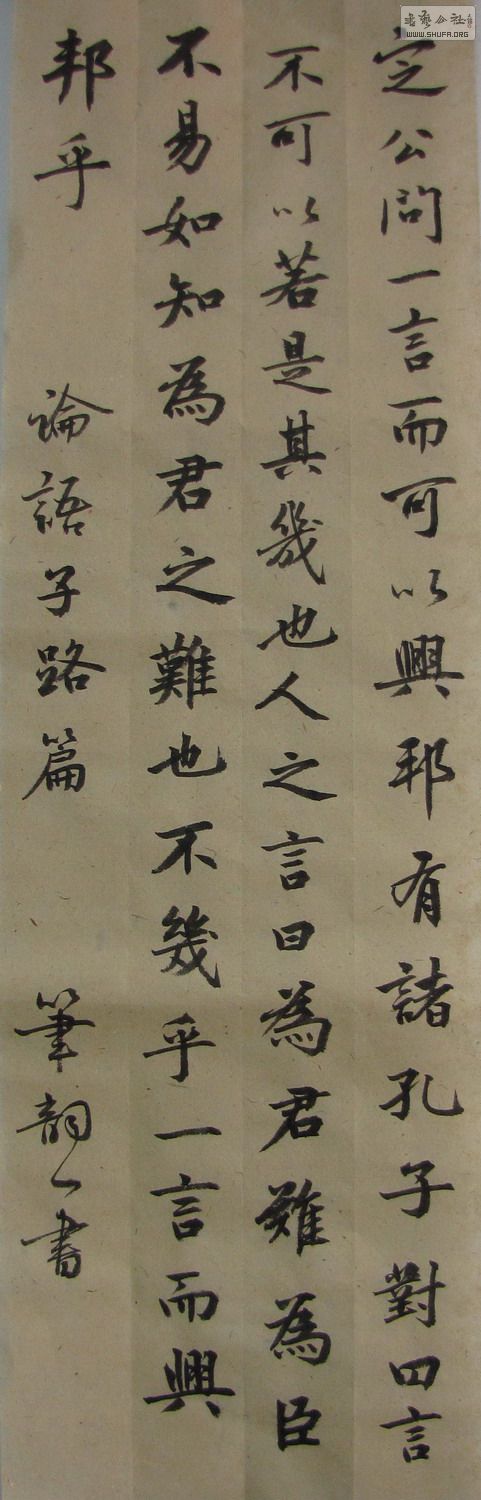 定公問一言而可以興邦有諸孔子對曰言
不可以若是其幾也人之言曰為君難為臣
不易如知為君之難也不幾乎一言而興
邦乎
論語子路篇
筆韵一書
書藝公社
WWW.SHUFA.ORG